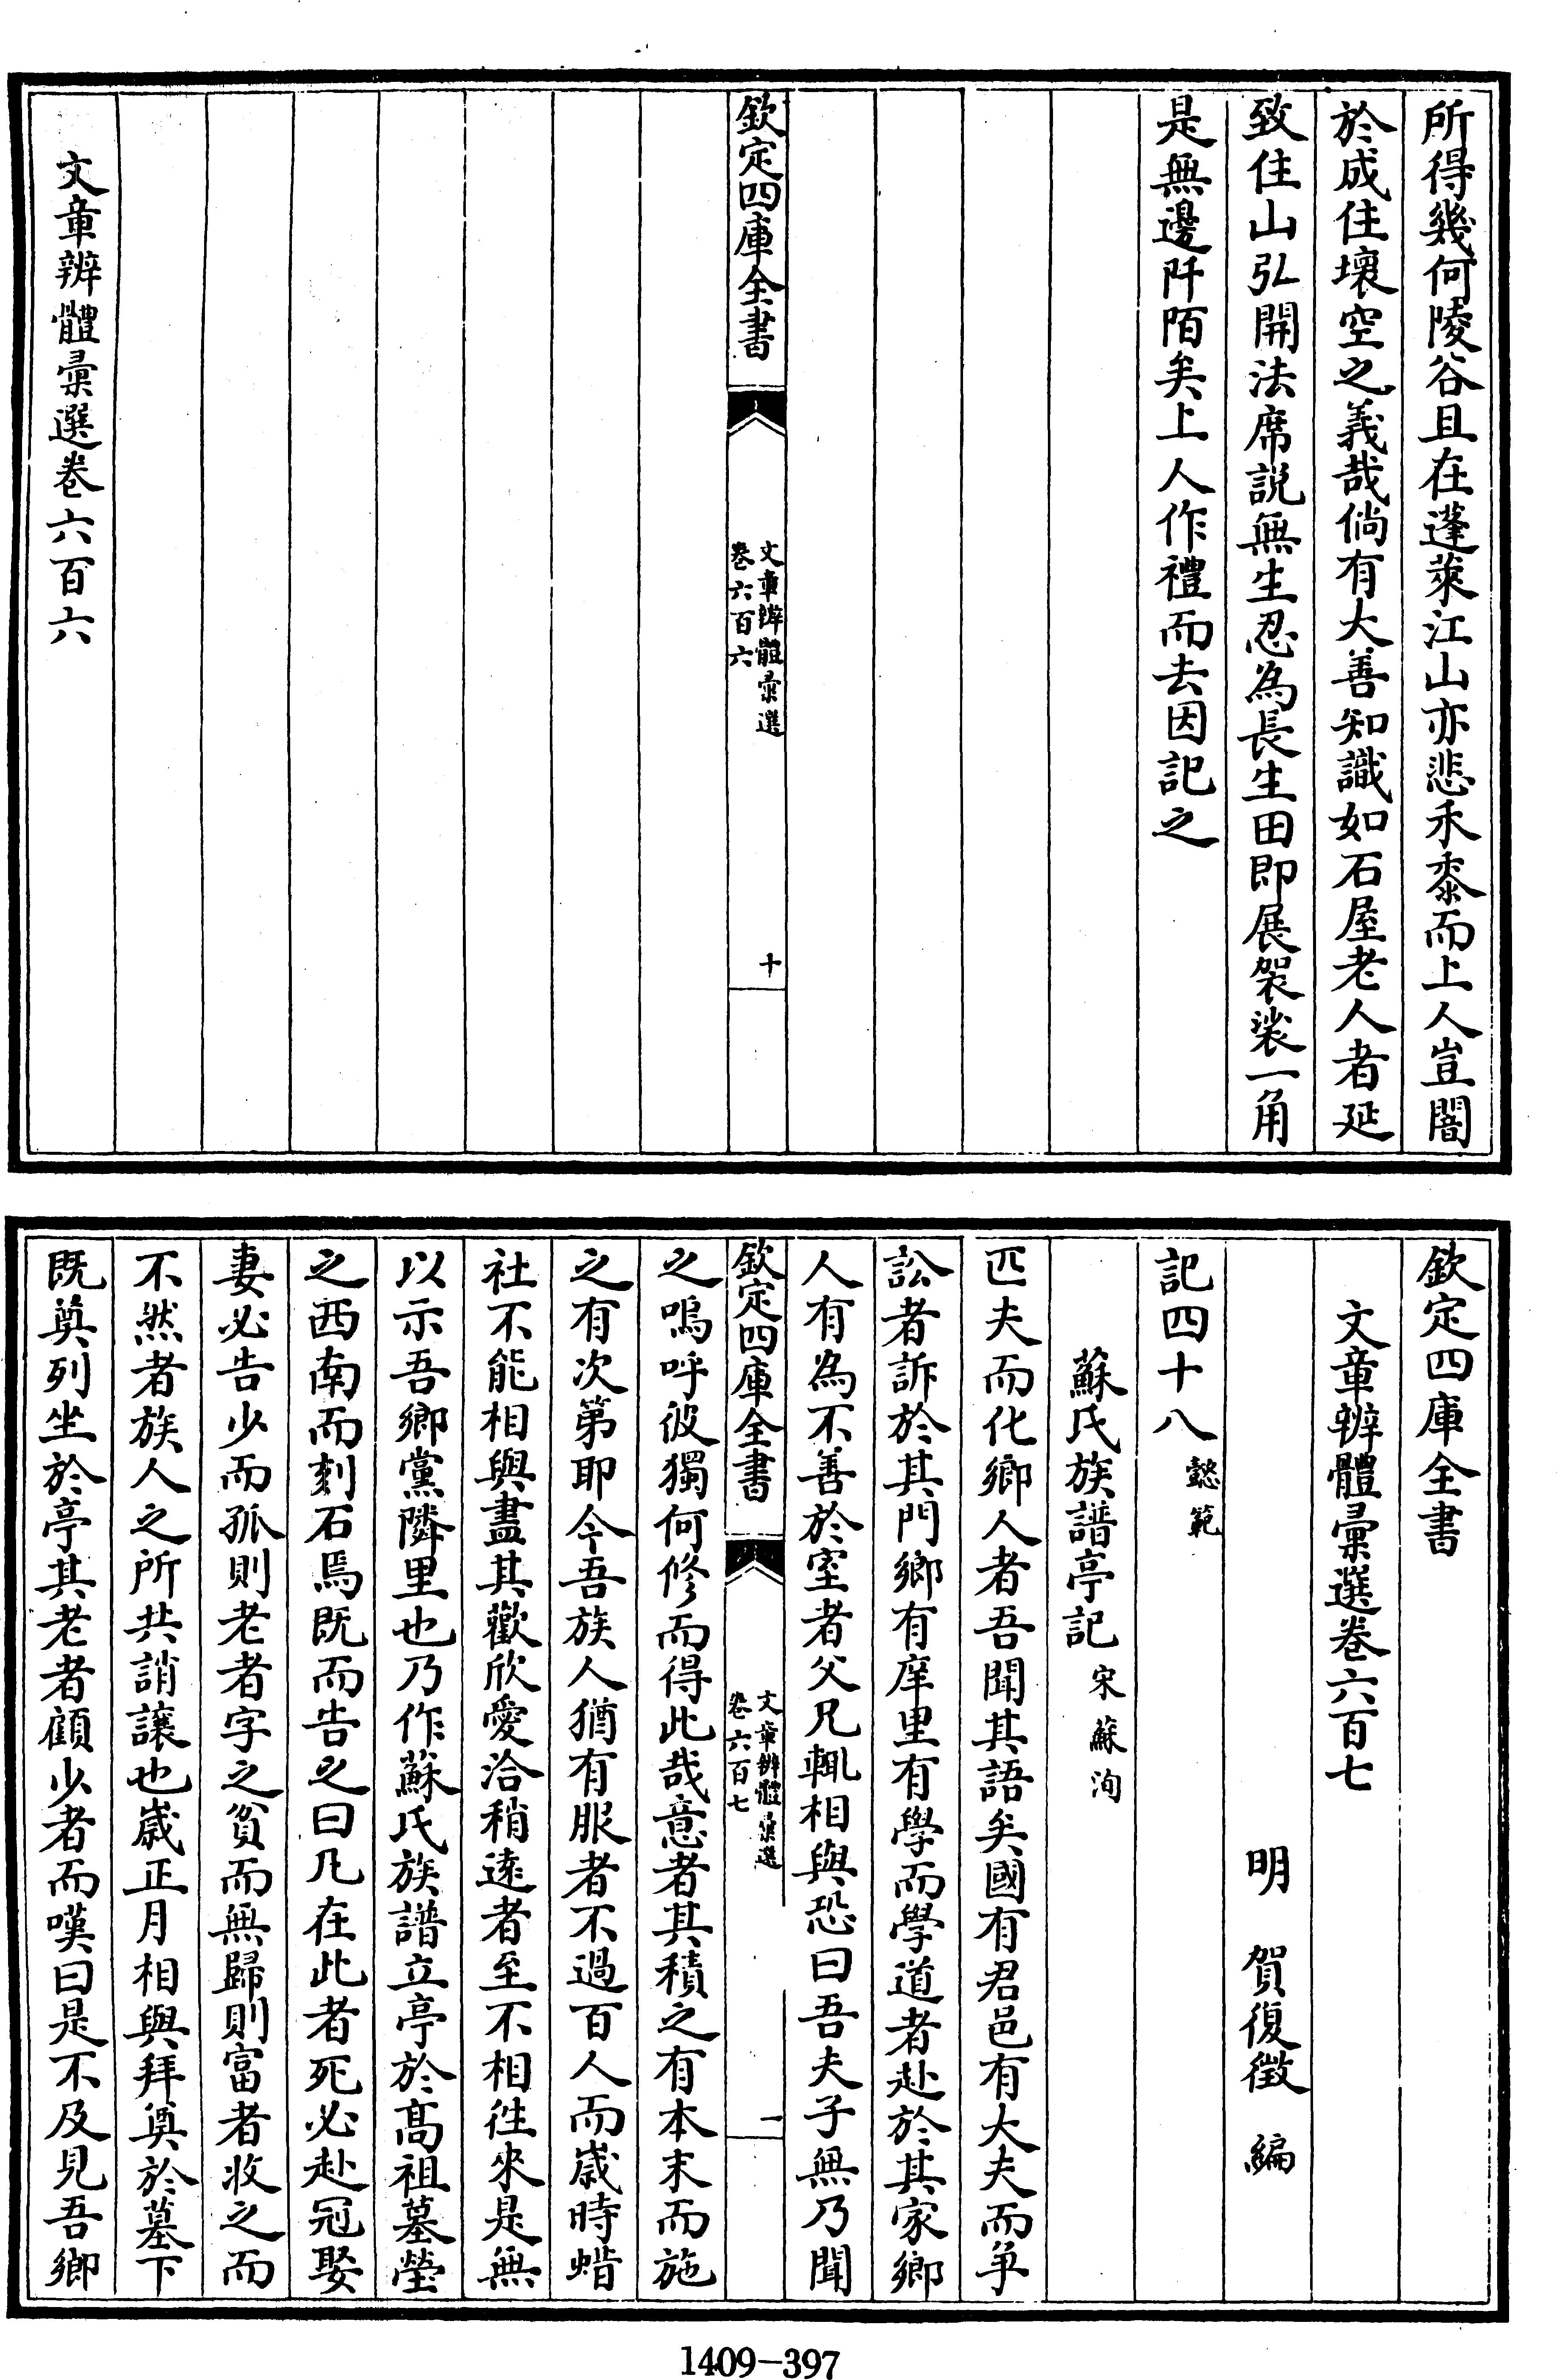 所得幾何陵谷且在蓬萊江山亦悲禾黍而上人豈闇
於成住壞空之義哉倘有大善知識如石屋老人者延
致住山弘開法席説無生忍為長生田即展袈裟一角
是無邊阡陌矣上人作禮而去因記之
欽定四庫全書
文章辨體彙選
卷六百六
十
文章辨體彙選卷六百六
欽定四庫全書
文章辨體彙選卷六百七
明 賀復徵 編
記四十八懿範
蘇氏族譜亭記宋蘇洵
匹夫而化鄉人者吾聞其語矣國有君邑有大夫而爭
訟者訴於其門鄉有庠里有學而學道者赴於其家鄉
人有為不善於室者父兄輒相與恐曰吾夫子無乃聞
欽定四庫全書
文章辨體彙選
卷六百七
一
之嗚呼彼獨何修而得此哉意者其積之有本末而施
之有次第耶今吾族人猶有服者不過百人而嵗時蜡
社不能相與盡其歡欣愛洽稍逺者至不相徃來是無
以示吾鄉黨隣里也乃作蘇氏族譜立亭於髙祖墓塋
之西南而刻石焉既而告之曰凡在此者死必赴冠娶
妻必告少而孤則老者字之貧而無歸則富者收之而
不然者族人之所共誚讓也嵗正月相與拜奠於墓下
既奠列坐於亭其老者顧少者而嘆曰是不及見吾鄉
1409-397